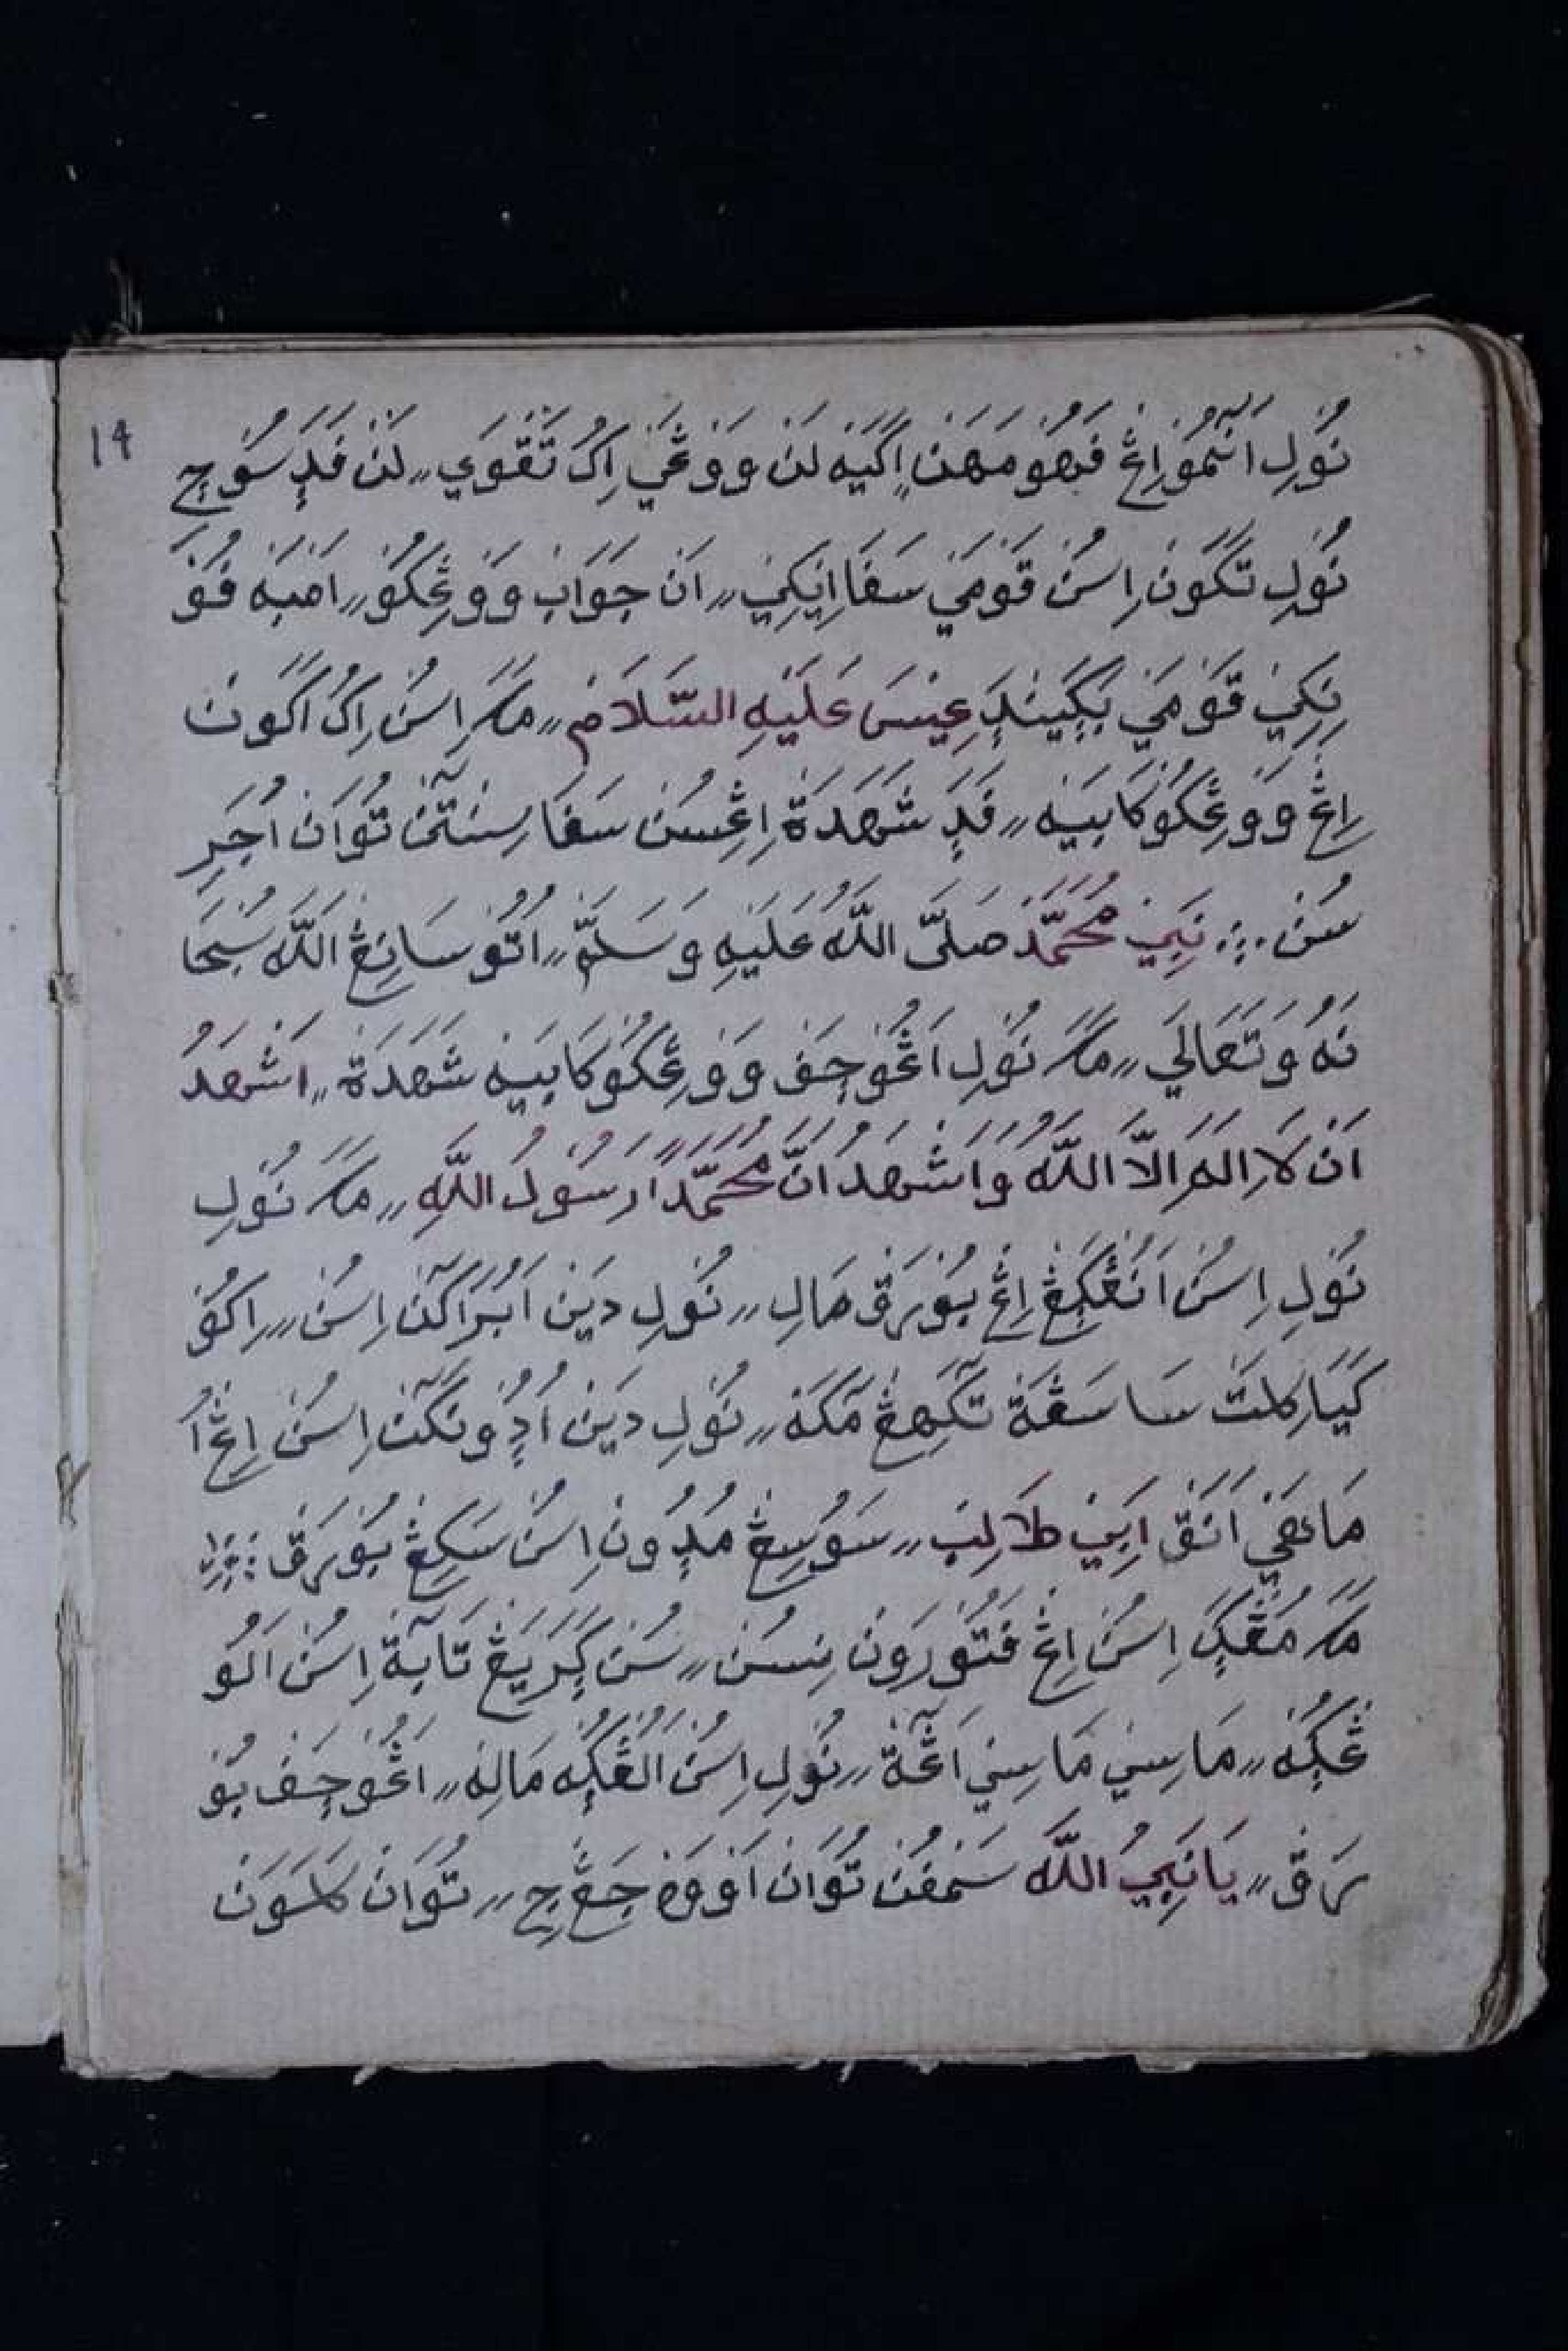 19
نُوْلِ اَنٓمُوْ اِڠْ فَبَهُوْمَهَنْ اَكَيَهْ لَنْ وَوْڠَنَيْ اِكُ تَقْوَي ,, لَنْ فَدَ سُوْجِ
نُوْلِ تَكَوْنْ اِسُنْ قَوْمَيْ سَفَا اِيْكِيْ ,, اَنْ جَوَابْ وَوْڠِكُوْ ,, اَمْبَهْ فُوْ
نِكِيْ قَوْمَيْ بَڮَيْنْدَ عِيْسَى عَلَيْهِ السَّلَامْ ,, مَكَ اِسُنْ اِكُ اَكَوْنْ
اِڠْ وَوْڠِكُوْ كَابَيَهْ ,, فَدَ شَهَدَةْ اِڠْسُنْ سَفَا سِنْتَٓنْ تُوَانْ اُجَرِ
سُنْ ؞ نَبِيْ مُحَمَّدْ صَلَّى اللّٰهُ عَلَيْهِ وَسَلَّمْ ,, اُتُوْسَانِڠْ اللّٰهْ سُبْحَا
نَهُ وَتَعَالَي ,, مَكَ نُوْلِ اَڠُوْجَفْ وَوْڠِكُوْ كَابَيَهْ شَهَدَةْ ,, اَشْهَدُ
اَنْ لَا اِلٰهَ اِلَّا اللّٰهُ وَاَشْهَدُ اَنَّ مُحَمَّدًا رَسُوْلُ اللّٰهِ ,, مَكَ نُوْلِ
نُوْلِ اِسُنْ اَنُڠْڮَڠْ اِڠْ بُوْرَقْ مَالِ ,, نُوْلِ دَيْنْ اَبُرَاكَٓنْ اِسُنْ ,, اِكُوْ
كَيَا كِلَتْ سَا سَڠَةْ تَكَهِڠْ مَكَهْ ,, نُوْلِ دَيْنْ اُدُوْنَكَٓنْ اِسُنْ اِڠْ اُ
مَاهَيْ اَنَقْ اَبِيْ طَالِبْ ,, سَوْسِڠْ مُدُوْنْ اِسُنْ سَكِڠْ بُوْرَقْ ؞
مَكَ مُڠْڮَ اِسُنْ اِڠْ فَتُوْرَوْنْ نِسُنْ ,, سُنْ ڮَرَيَڠْ تَابَٓةْ اِسُنْ اَلُو
ڠْڮُهْ ,, مَاسِيْ مَاسِيْ اَڠَٓةْ ,, نُوْلِ اِسُنْ اَلُڠْڮُهْ مَالِهْ ,, اَڠُوْجَفْ بُوْ
رَقْ ,, يَانَبِيُ اللّٰهْ سَمْفُنْ تُوَانْ اَوْوَهْ جَڠْجِ ,, تُوَانْ كَلَوَنْ